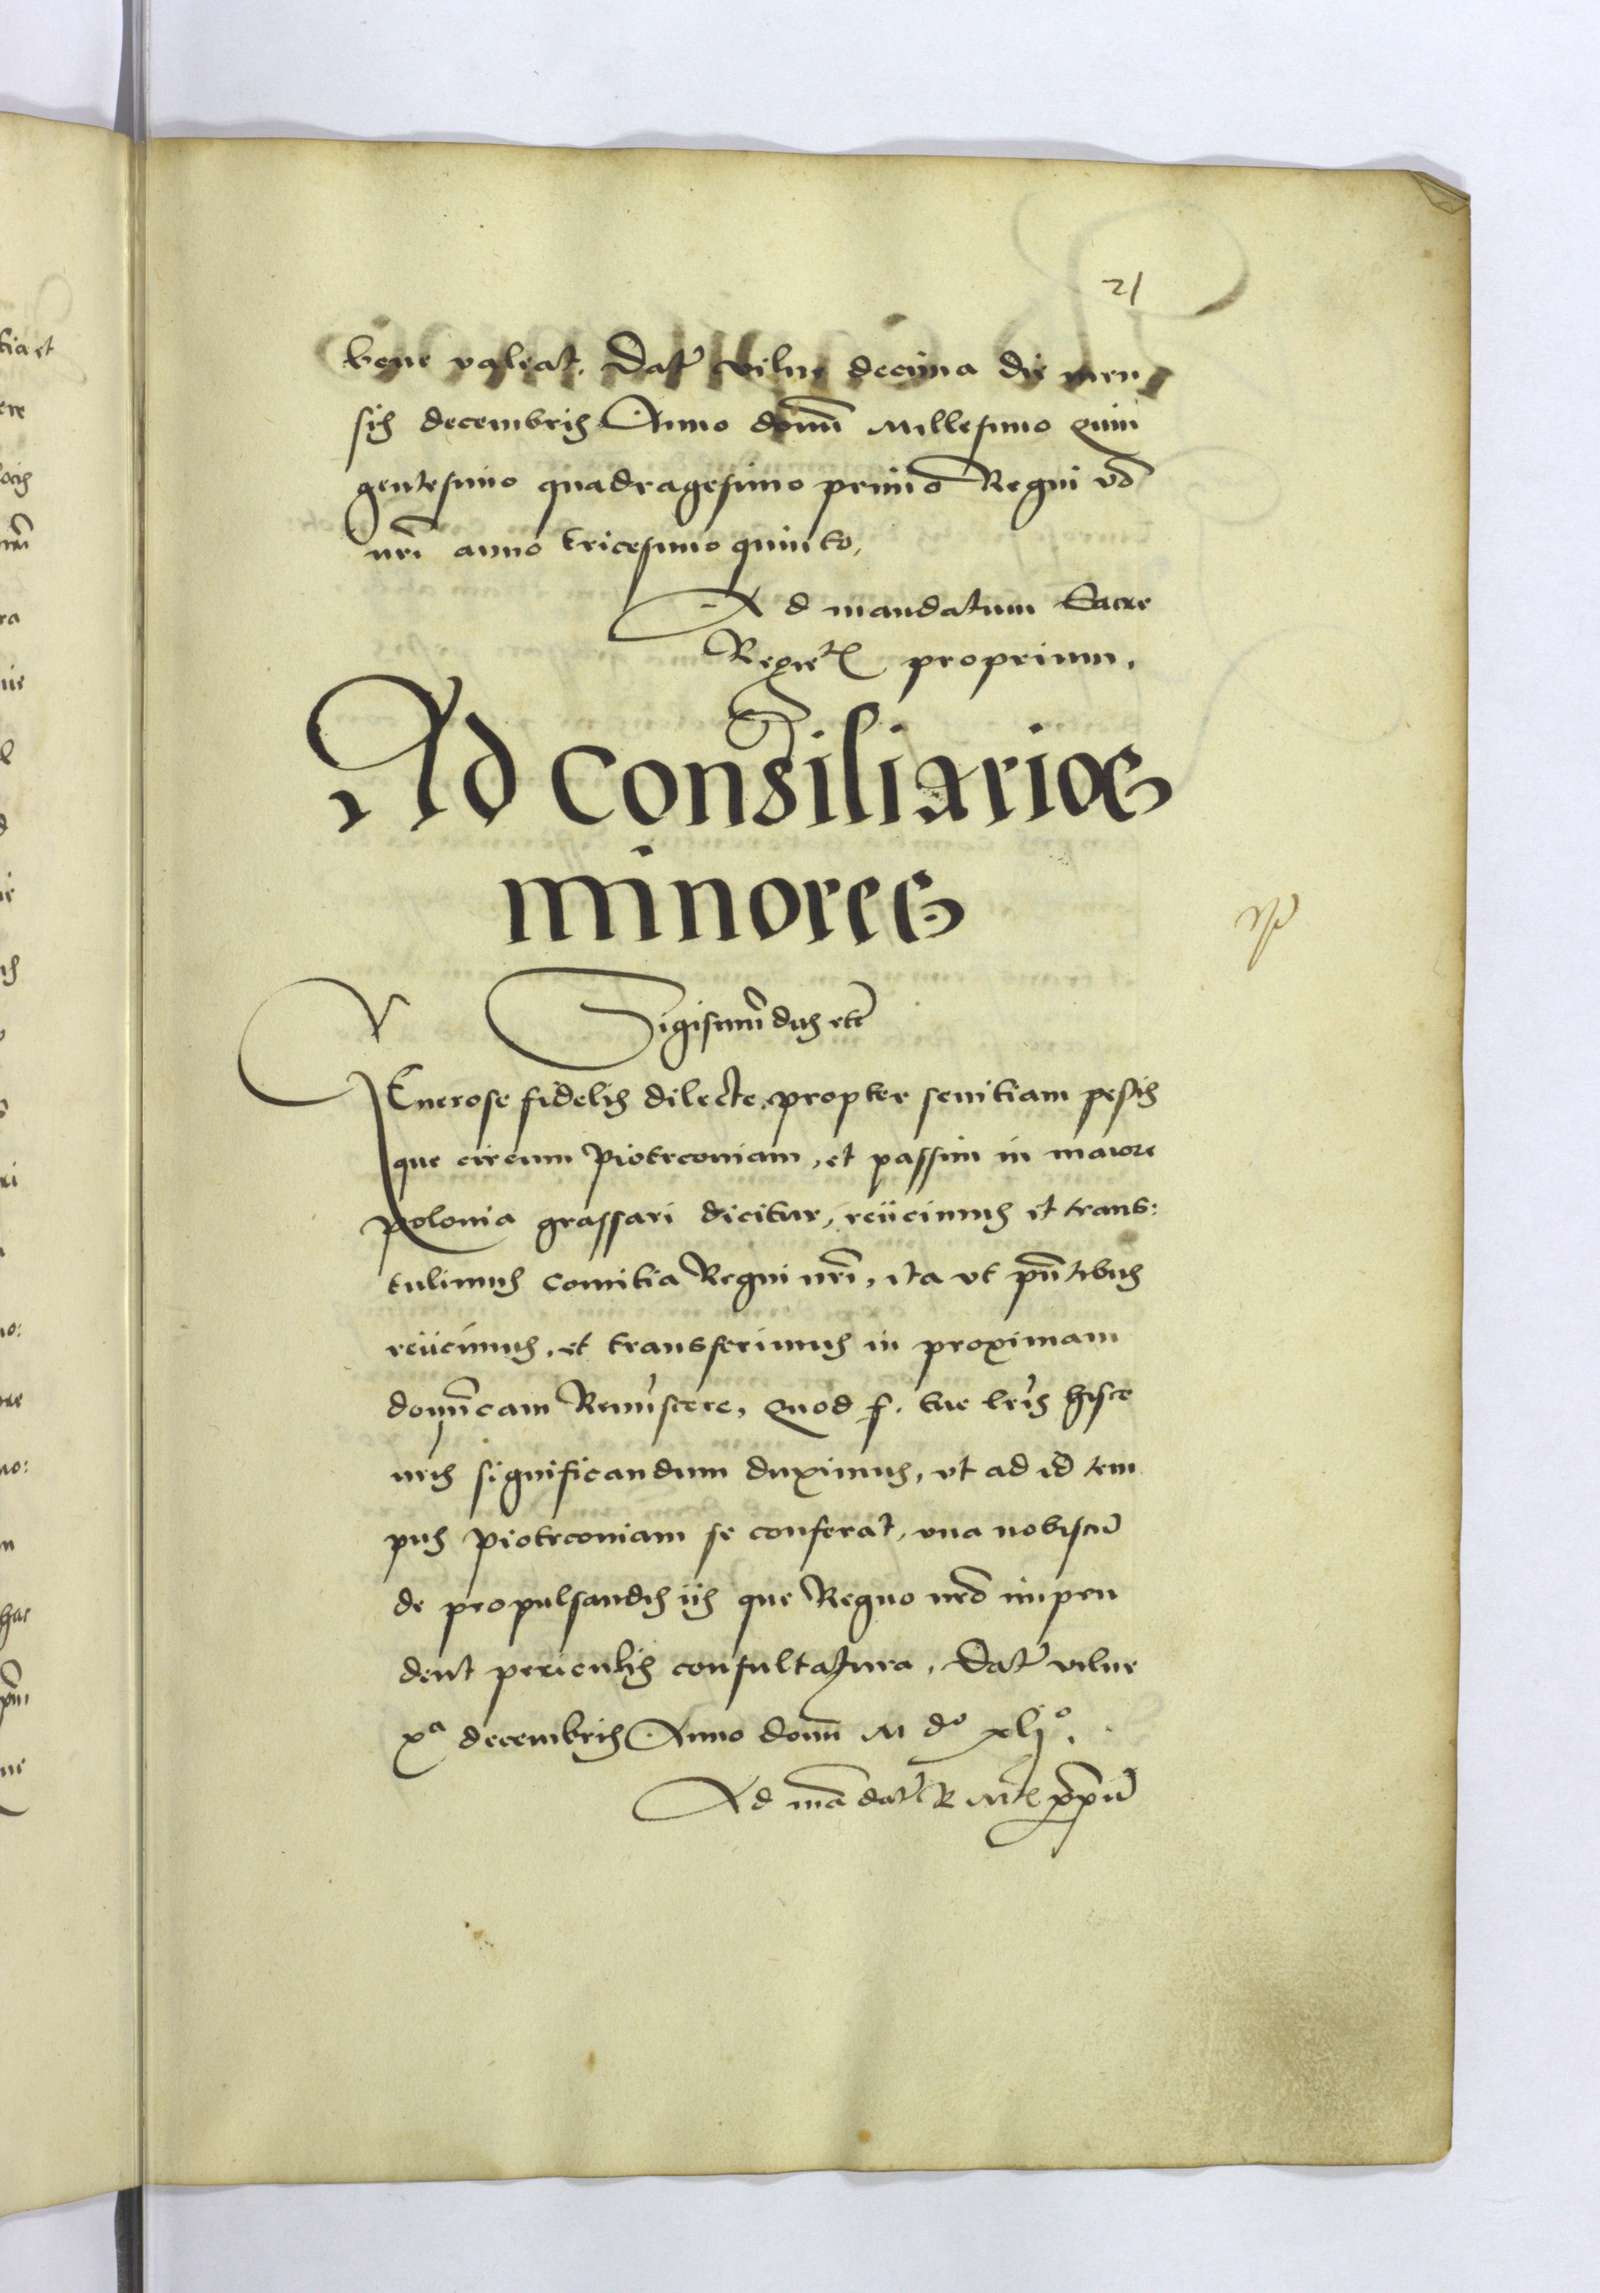 21
bene valeat. Dat̃ Vilne decima die men
sis decembris Anno domi Millesimo Quin
gentesimo quadragesimo primo Regni vo
nri anno tricesimo quinto.
Ad mandatum Sacre
Regie proprium.
Ad Consiliarios
minores
Sigismũdus etc̃
Generose fidelis dilecte, propter seuitiam pestis
que circum Piotrconiam, et passim in maiore
Polonia grassari dicitur, reijcimus et trans:
tulimus Comitia Regni nrĩ, ita vt pñtibus
reijcimus, et transferimus in proximam
domĩcam Remiscere, Quod f. tue lrĩs hisce
nrĩs significandum duximus, vt ad id tem
pus Piotrconiam se conferat, vna nobiscũ
de propulsandis ijs que Regno nrõ impen
dent periculis consultatura. Dat̃ Vilne
xª decembris Anno domi M dº xljº.
Ad mãdatũ R Mtis ppriũ